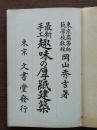 東京高等師
範学校教授 岡山秀吉著
最新
手工 趣味の厚紙建築
東京 文書堂發行